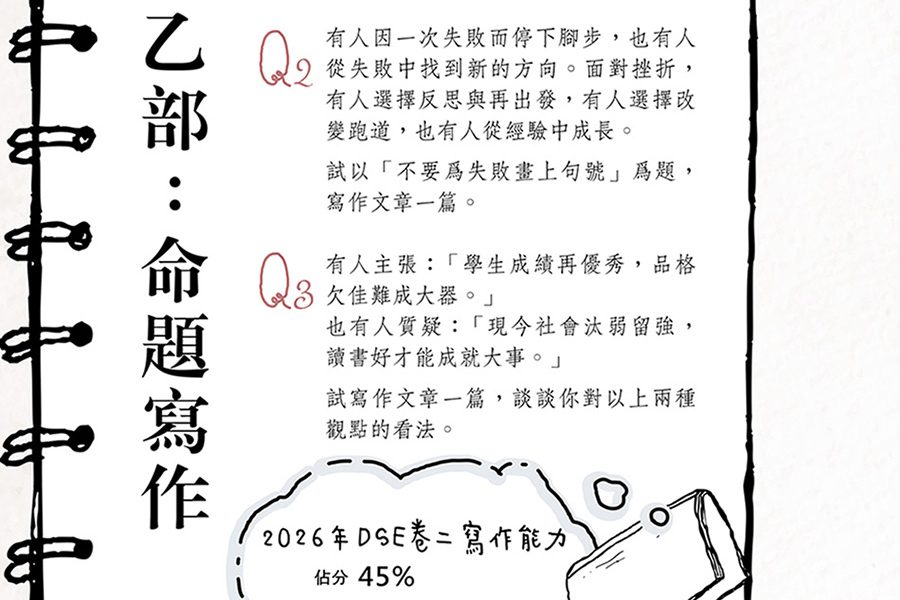 乙部：命題寫作
Q2
有人因一次失敗而停下腳步，也有人
從失敗中找到新的方向。面對挫折，
有人選擇反思與再出發，有人選擇改
變跑道，也有人從經驗中成長。
試以「不要爲失敗畫上句號」爲題，
寫作文章一篇。
Q3
有人主張：「學生成績再優秀，品格
欠佳難成大器。」
也有人質疑：「現今社會汰弱留強，
讀書好才能成就大事。」
試寫作文章一篇，談談你對以上兩種
觀點的看法。
2026年DSE卷二寫作能力
佔分 45%